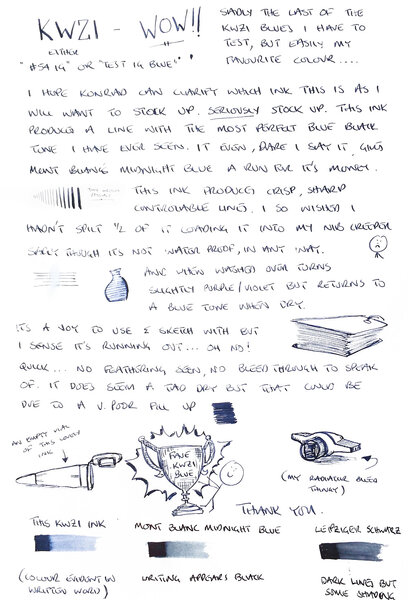 KWZI - WOW!!
SADLY THE LAST OF THE
KWZI BLUES I HAVE TO
TEST, BUT EASILY MY
FAVOURITE COLOUR....
EITHER
"#5A IG" OR "TEST IG BLUE"
I HOPE KONRAD CAN CLARIFY WHICH INK THIS IS AS I
WILL WANT TO STOCK UP. SERIOUSLY STOCK UP. THIS INK
PRODUCES A LINE WITH THE MOST PERFECT BLUE BLACK
TONE I HAVE EVER SEEN. IT EVEN, DARE I SAY IT, GIVES
MONT BLANC MIDNIGHT BLUE A RUN FOR IT'S MONEY.
THIS INK PRODUCES CRISP, SHARP
CONTROLABLE LINES. I SO WISHED I
HADN'T SPILT 1/2 OF IT LOADING IT INTO MY NIB CREEPER
SADLY THOUGH ITS NOT WATER PROOF, IN ANY WAY.
AND WHEN WASHED OVER TURNS
SLIGHTLY PURPLE/VIOLET BUT RETURNS TO
A BLUE TONE WHEN DRY.
ITS A JOY TO USE & SKETCH WITH BUT
I SENSE IT'S RUNNING OUT... OH NO!
QUICK... NO FEATHERING SEEN, NO BLEED THROUGH TO SPEAK
OF. IT DOES SEEM A TAD DRY BUT THAT COULD BE
DUE TO A V. POOR FILL UP
AN EMPTY VIAL
OF THIS LOVELY
INK
FINE
KWZI
BLUE
(MY RADIATOR BLEED
THINGY)
THANK YOU.
THIS KWZI INK
MONT BLANC MIDNIGHT BLUE
LEIPZIGER SCHWARZ
(COLOUR EVIDENT IN
WRITTEN WORD)
WRITING APPEARS BLACK
DARK LINES BUT
SOME SHADING